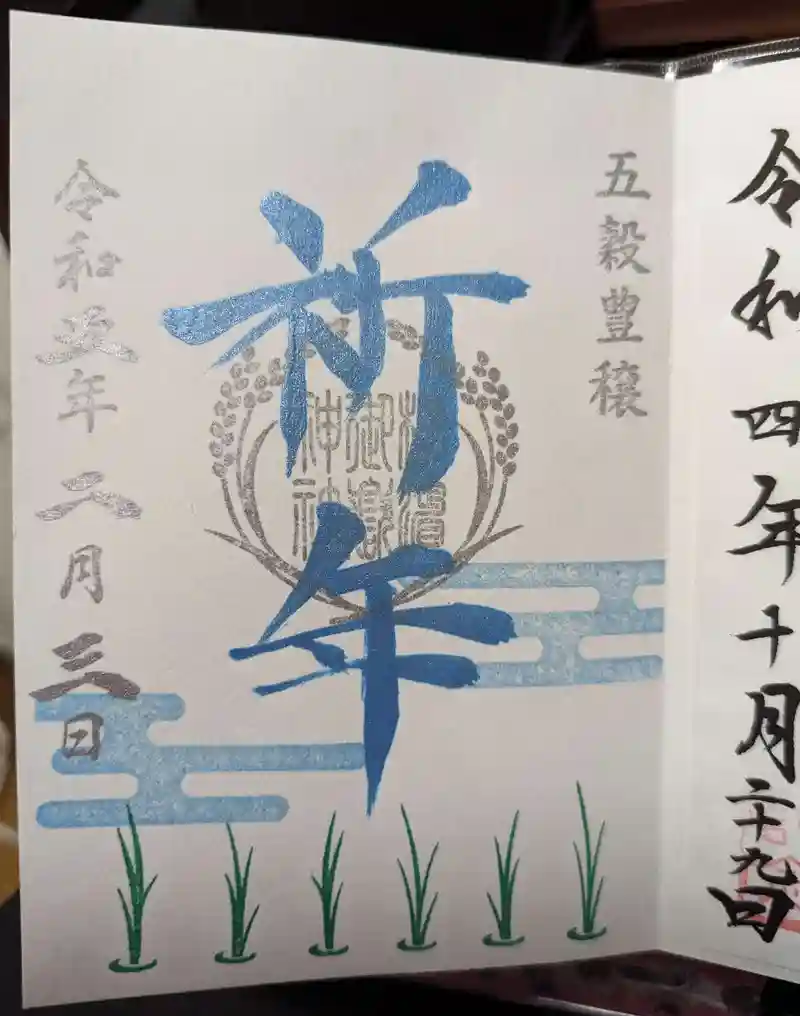 令和四年十月二十九日
五穀豊穣
祈年
横濱
御嶽
神社
令和五年二月三日